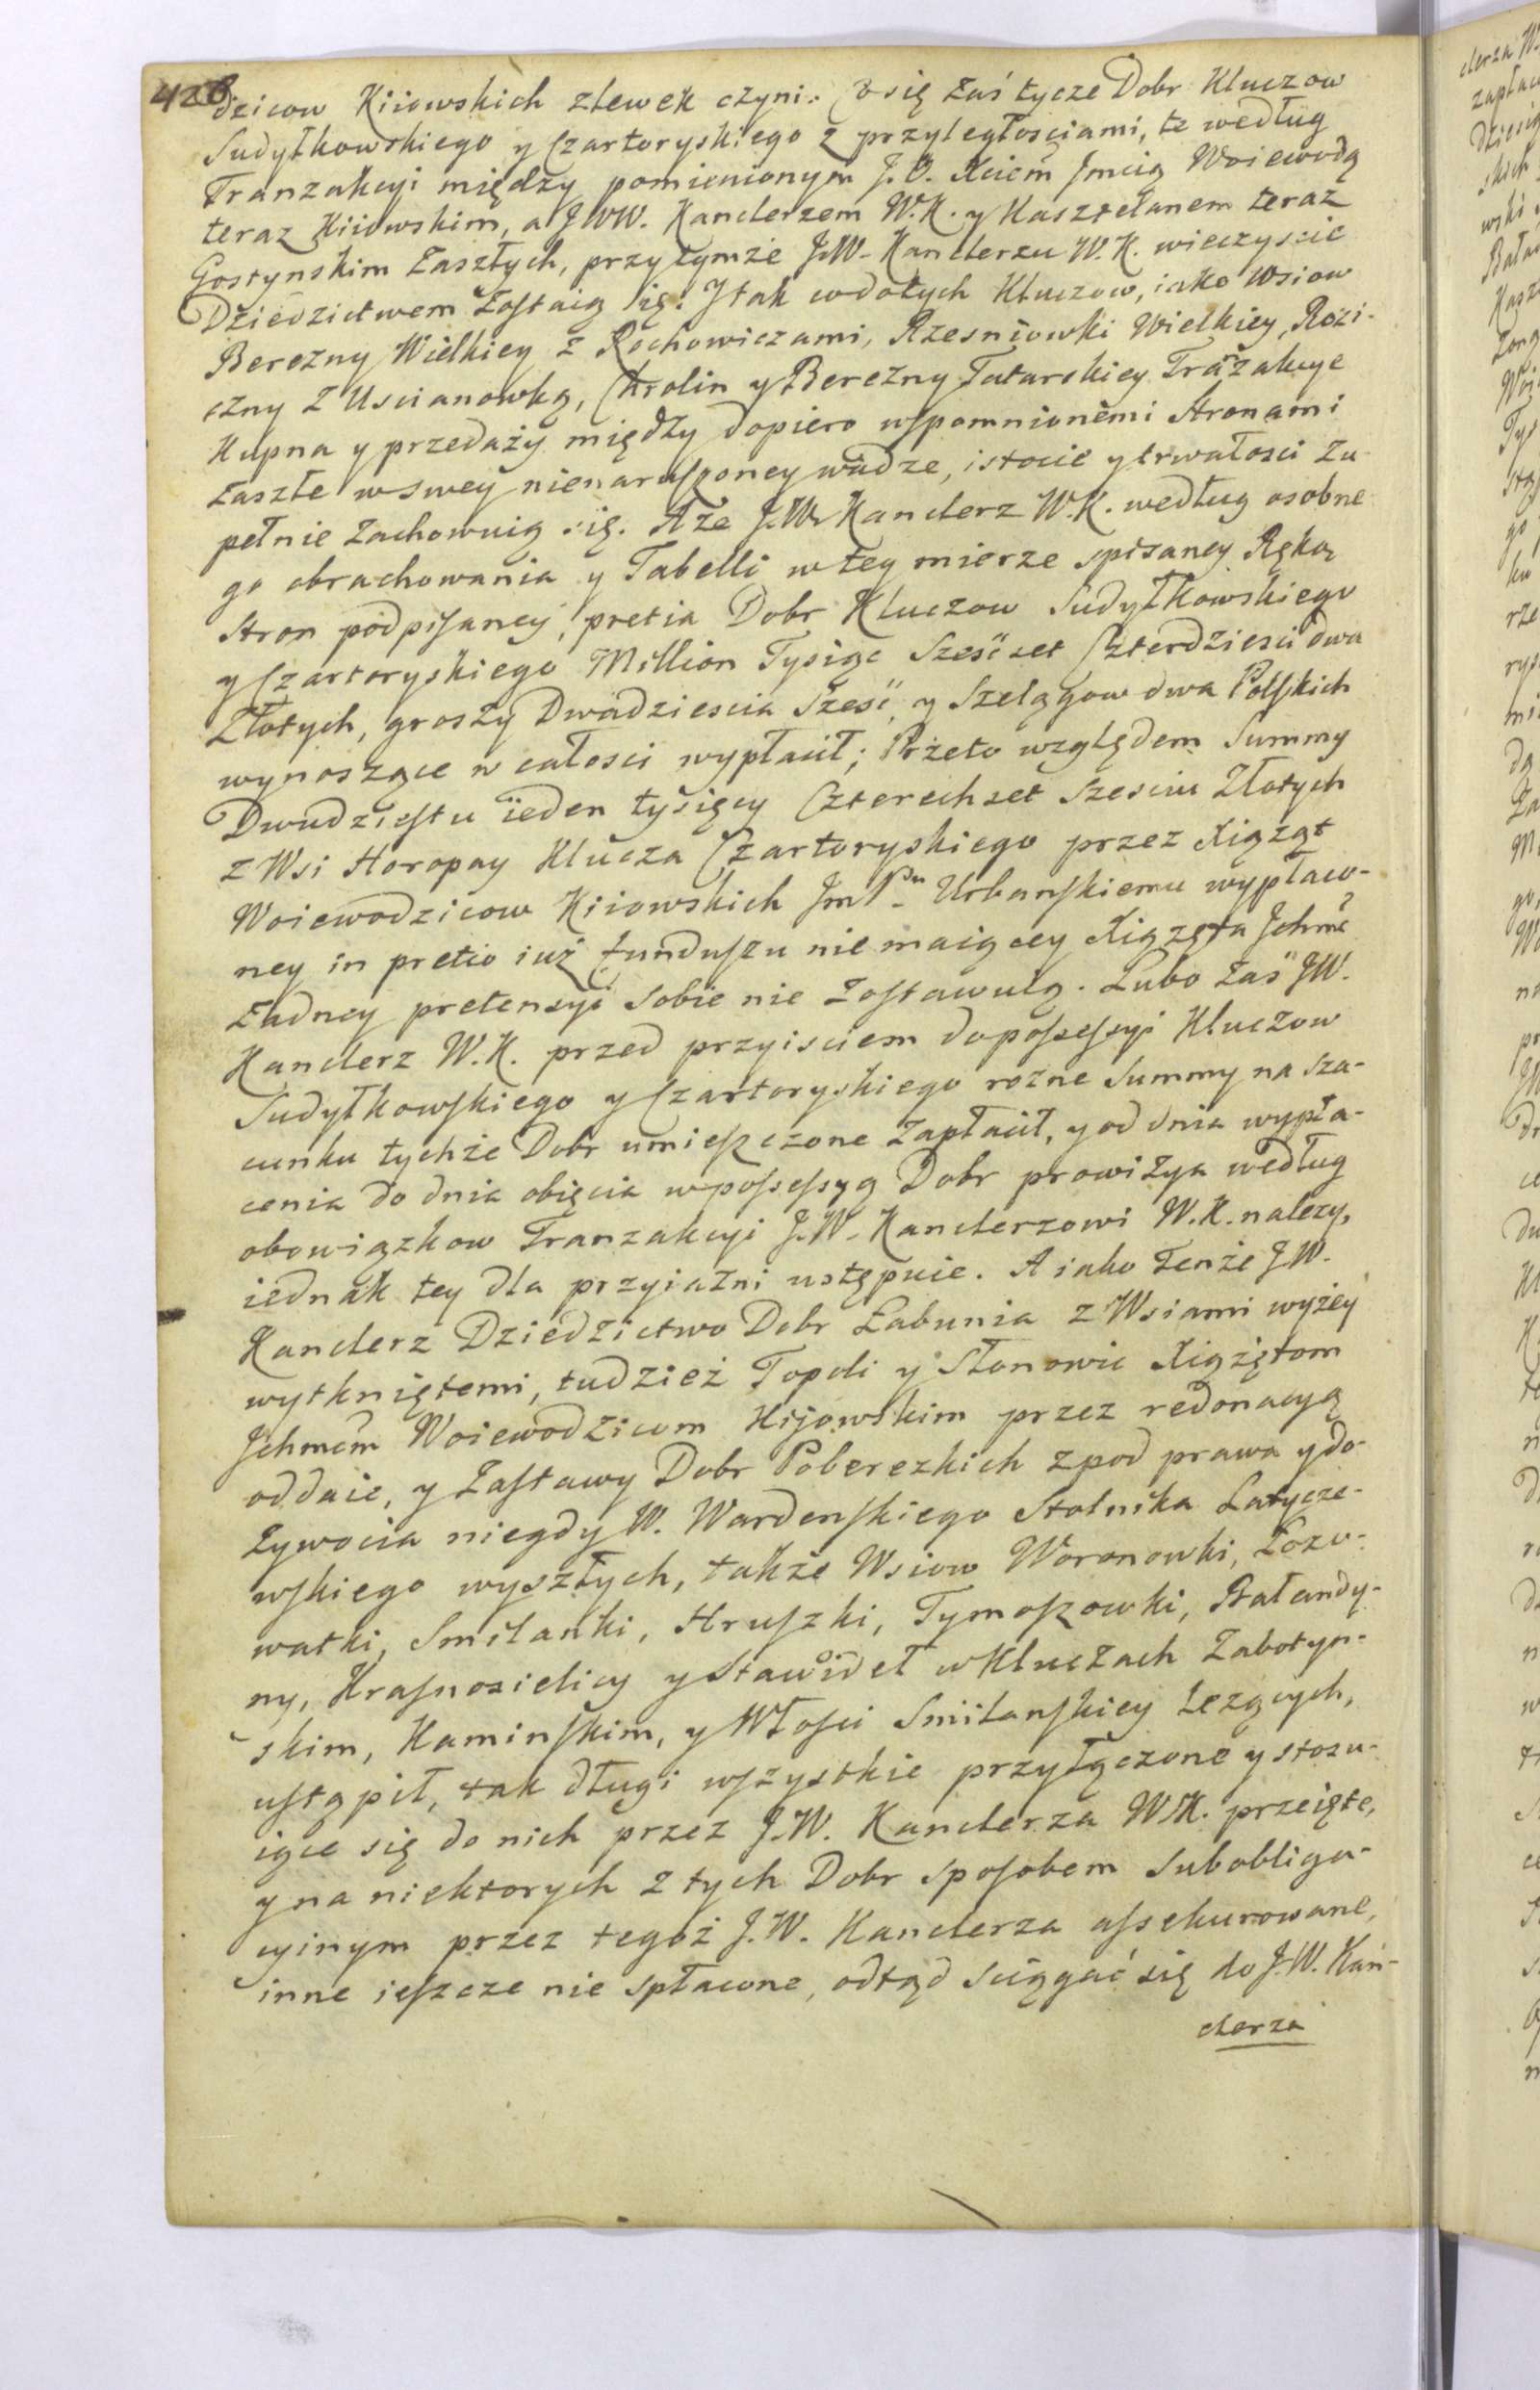 428
dzicow Kiiowskich zlewek czyni. Co się zaś tycze Dobr Kluczow
Sudyłkowskiego y Czartoryskiego z przyległosciami, te według
Tranzakcyi między pomienionym J.O. Xciem Jmcią Woiewodą
teraz Kiiowskim, a JWW. Kanclerzem W.K. y Kasztelanem teraz
Gostynskim zaszłych, przy tymże J.W. Kanclerzu W.K. wieczyscie
Dziedzictwem zostaią się. J tak co do tych Kluczow, iako Wsiow
Berezny Wielkiey z Rochowiczami, Rzesniowki Wielkiey, Rozi-
czny z Uscianowką, Chrolin y Berezny Tatarskiey Trãzakcye
Kupna y przedaży między dopiero wspomnionemi Stronami
zaszłe w swey nienaruszoney wadze, istocie y trwałosci zu-
pełnie zachowuią się. A że J.W. Kanclerz W.K. według osobne-
go obrachowania y Tabelli w tey mierze spisaney Ręką
Stron podpisaney, pretia Dobr Kluczow Sudyłkowskiego
y Czartoryskiego Million Tysiąc Szesćset Czterdziesci dwa
Złotych, groszy Dwadziescia Szesć, y Szelągow dwa Polskich
wynoszące w całosci wypłacił; Przeto względem Summy
Dwudziestu ieden tysięcy Czterechset Szesciu Złotych
z Wsi Horopay Klucza Czartoryskiego przez Xiążąt
Woiewodzicow Kiiowskich Jm Pnu Urbanskiemu wypłaco-
ney in pretio iuż funduszu nie maiącey Xiążęta Jchmć
żadney pretensyi sobie nie zostawuią. Lubo zaś JW.
Kanclerz W.K. przed przyisciem do possessyi Kluczow
Sudyłkowskiego y Czartoryskiego rozne Summy na sza-
cunku tychże Dobr umieszczone zapłacił, y od dnia wypła-
cenia do dnia obięcia w possessyą Dobr prowizya według
obowiązkow Tranzakcyi J.W. Kanclerzowi W.K. należy,
iednak tey dla przyiazni ustępuie. A iako tenże J.W.
Kanclerz Dziedzictwo Dobr Łabunia z Wsiami wyżey
wytkniętemi, tudzież Topoli y Słonowic Xiążętom
Jchmcm Woiewodzicom Kijowskim przez redonacyą
oddaie, y zastawy Dobr Poberezkich z pod prawa y do-
żywocia niegdy W. Wardenskiego Stolnika Latycze-
wskiego wyszłych, także Wsiow Woronowki, Łozo-
watki, Smilanki, Hruszki, Tymoszowki, Bałandy-
ny, Krasnosielicy y Stawideł w Kluczach Zabotyn-
skim, Kaminskim, y Włosci Smilanskiey leżących,
ustąpił, tak długi wszystkie przyłączone y stosu-
iące się do nich przez J.W. Kanclerza W.K. przeięte,
y na niektorych z tych Dobr sposobem subobliga-
cyinym przez tegoż J.W. Kanclerza assekurowane,
inne ieszcze nie spłacone, odtąd sciągać się do J.W. Kan-
clerza